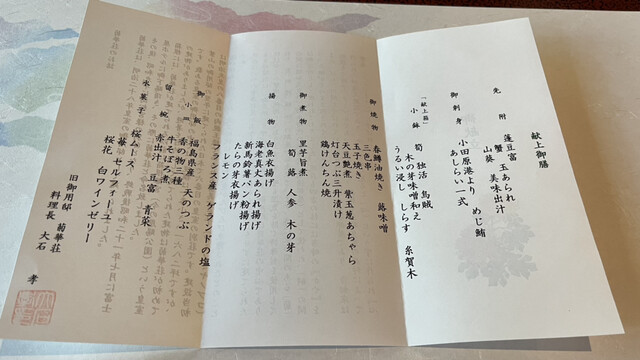 献上御膳
先附
蓬豆富 玉あられ
蟹 美味出汁
山葵
御刺身
小田原港より めじ鮪
あしらい一式
「献上箱」
小鉢
筍 独活 烏賊
木の芽味噌和え
うるい浸し しらす 糸賀木
御焼物
春鰤油焼き 蕗味噌
三色串
玉子焼き
天豆艶煮 紫玉葱あちゃら
灯台つぶ三升漬け
鶏けんちん焼
御煮物
里芋旨煮
筍 蕗 人参 木の芽
揚物
白魚衣揚げ
海老真丈あられ揚げ
新馬鈴薯パン粉揚げ
たらの芽衣揚げ
レモン
フランス産 ゲランドの塩
御飯
福島県産 天のつぶ
小皿
香の物三種
牛そぼろ煮
留椀
赤出汁 豆富 青菜
水菓子
桜ムース
苺 セルフィーユ
桜花 白ワインゼリー
旧御用邸 菊華荘
料理長 大石 孝